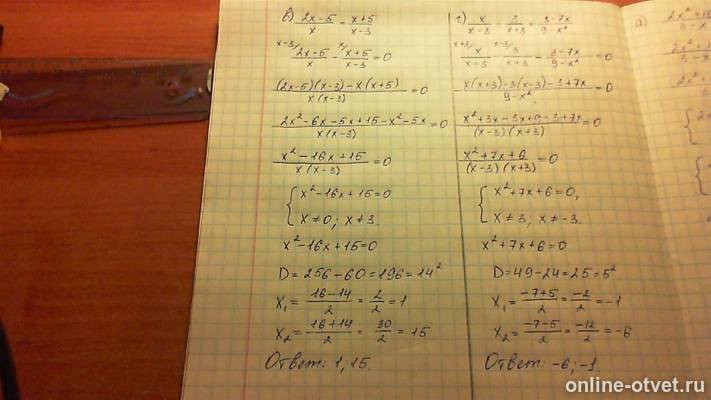 в) (2x-5)/x = (x+5)/(x-3)
x-3/ (2x-5)/x - x/ (x+5)/(x-3) = 0
((2x-5)(x-3)-x(x+5))/(x(x-3)) = 0
(2x²-6x-5x+15-x²-5x)/(x(x-3)) = 0
(x²-16x+15)/(x(x-3)) = 0
{ x²-16x+15=0
x≠0; x≠3.
x²-16x+15=0
D=256-60=196=14²
x₁ = (16-14)/2 = 2/2 = 1
x₂ = (16+14)/2 = 30/2 = 15
Ответ: 1, 15.
г) x/(x-3) - 3/(x+3) = (3-7x)/(9-x²)
x+3/ x/(x-3) - x-3/ 3/(x+3) - (3-7x)/(9-x²) = 0
(x(x+3)-3(x-3)-3+7x)/(9-x²) = 0
(x²+3x-3x+9-3+7x)/((x-3)(x+3)) = 0
(x²+7x+6)/((x-3)(x+3)) = 0
{ x²+7x+6=0,
x≠3; x≠-3.
x²+7x+6=0
D=49-24=25=5²
x₁ = (-7+5)/2 = -2/2 = -1
x₂ = (-7-5)/2 = -12/2 = -6
Ответ: -6; -1
online-otvet.ru